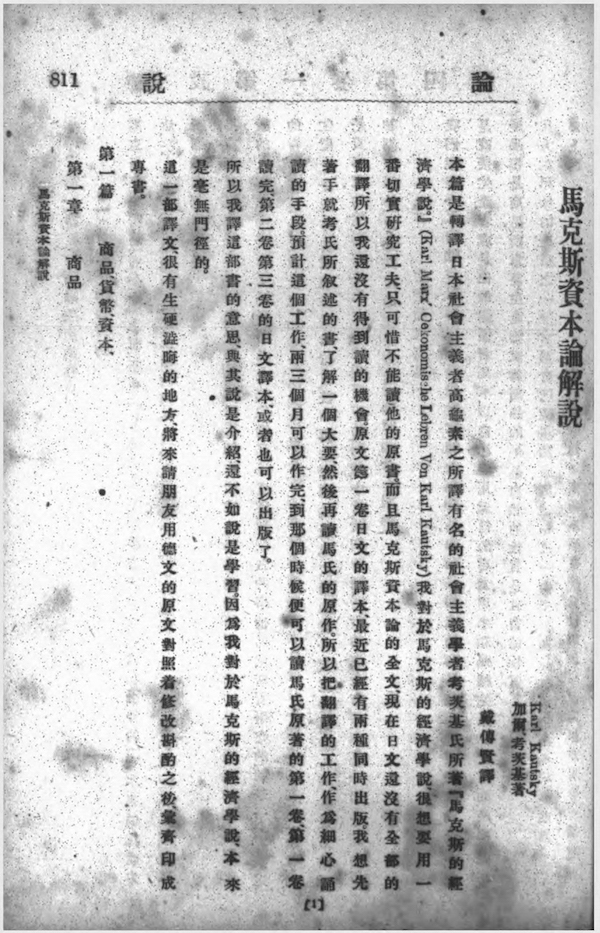 論說
811
馬克斯資本論解說
Karl Kautsky
加爾,考茨基著
戴傳賢譯
本篇是轉譯日本社會主義者高畠素之所譯有名的社會主義學者考茨基氏所著『馬克斯的經
濟學說』(Karl Marx, Oekonomische Lehren Von Karl Kautsky)我對於馬克斯的經濟學說,很想要用一
番切實研究工夫,只可惜不能讀他的原書。而且馬克斯資本論的全文現在日文還沒有全部的
翻譯,所以我還沒有得到讀的機會,原文第一卷日文的譯本最近已經有兩種同時出版,我想先
著手就考氏所敘述的書,了解一個大要然後再讀馬氏的原作。所以把翻譯的工作,作爲細心誦
讀的手段。預計這個工作,兩三個月可以作完,到那個時候便可以讀馬氏原著的第一卷,第一卷
讀完,第二卷第三卷的日文譯本,或者也可以出版了。
所以我譯這部書的意思,與其說是介紹還不如說是學習。因爲我對於馬克斯的經濟學說,本來
是毫無門徑的。
這一部譯文很有生硬澁晦的地方將來請朋友用德文的原文對照着修改斟酌之後,彙齊印成
專書。
第一篇 商品,貨幣,資本、
第一章 商品
馬克斯資本論解說
[1]